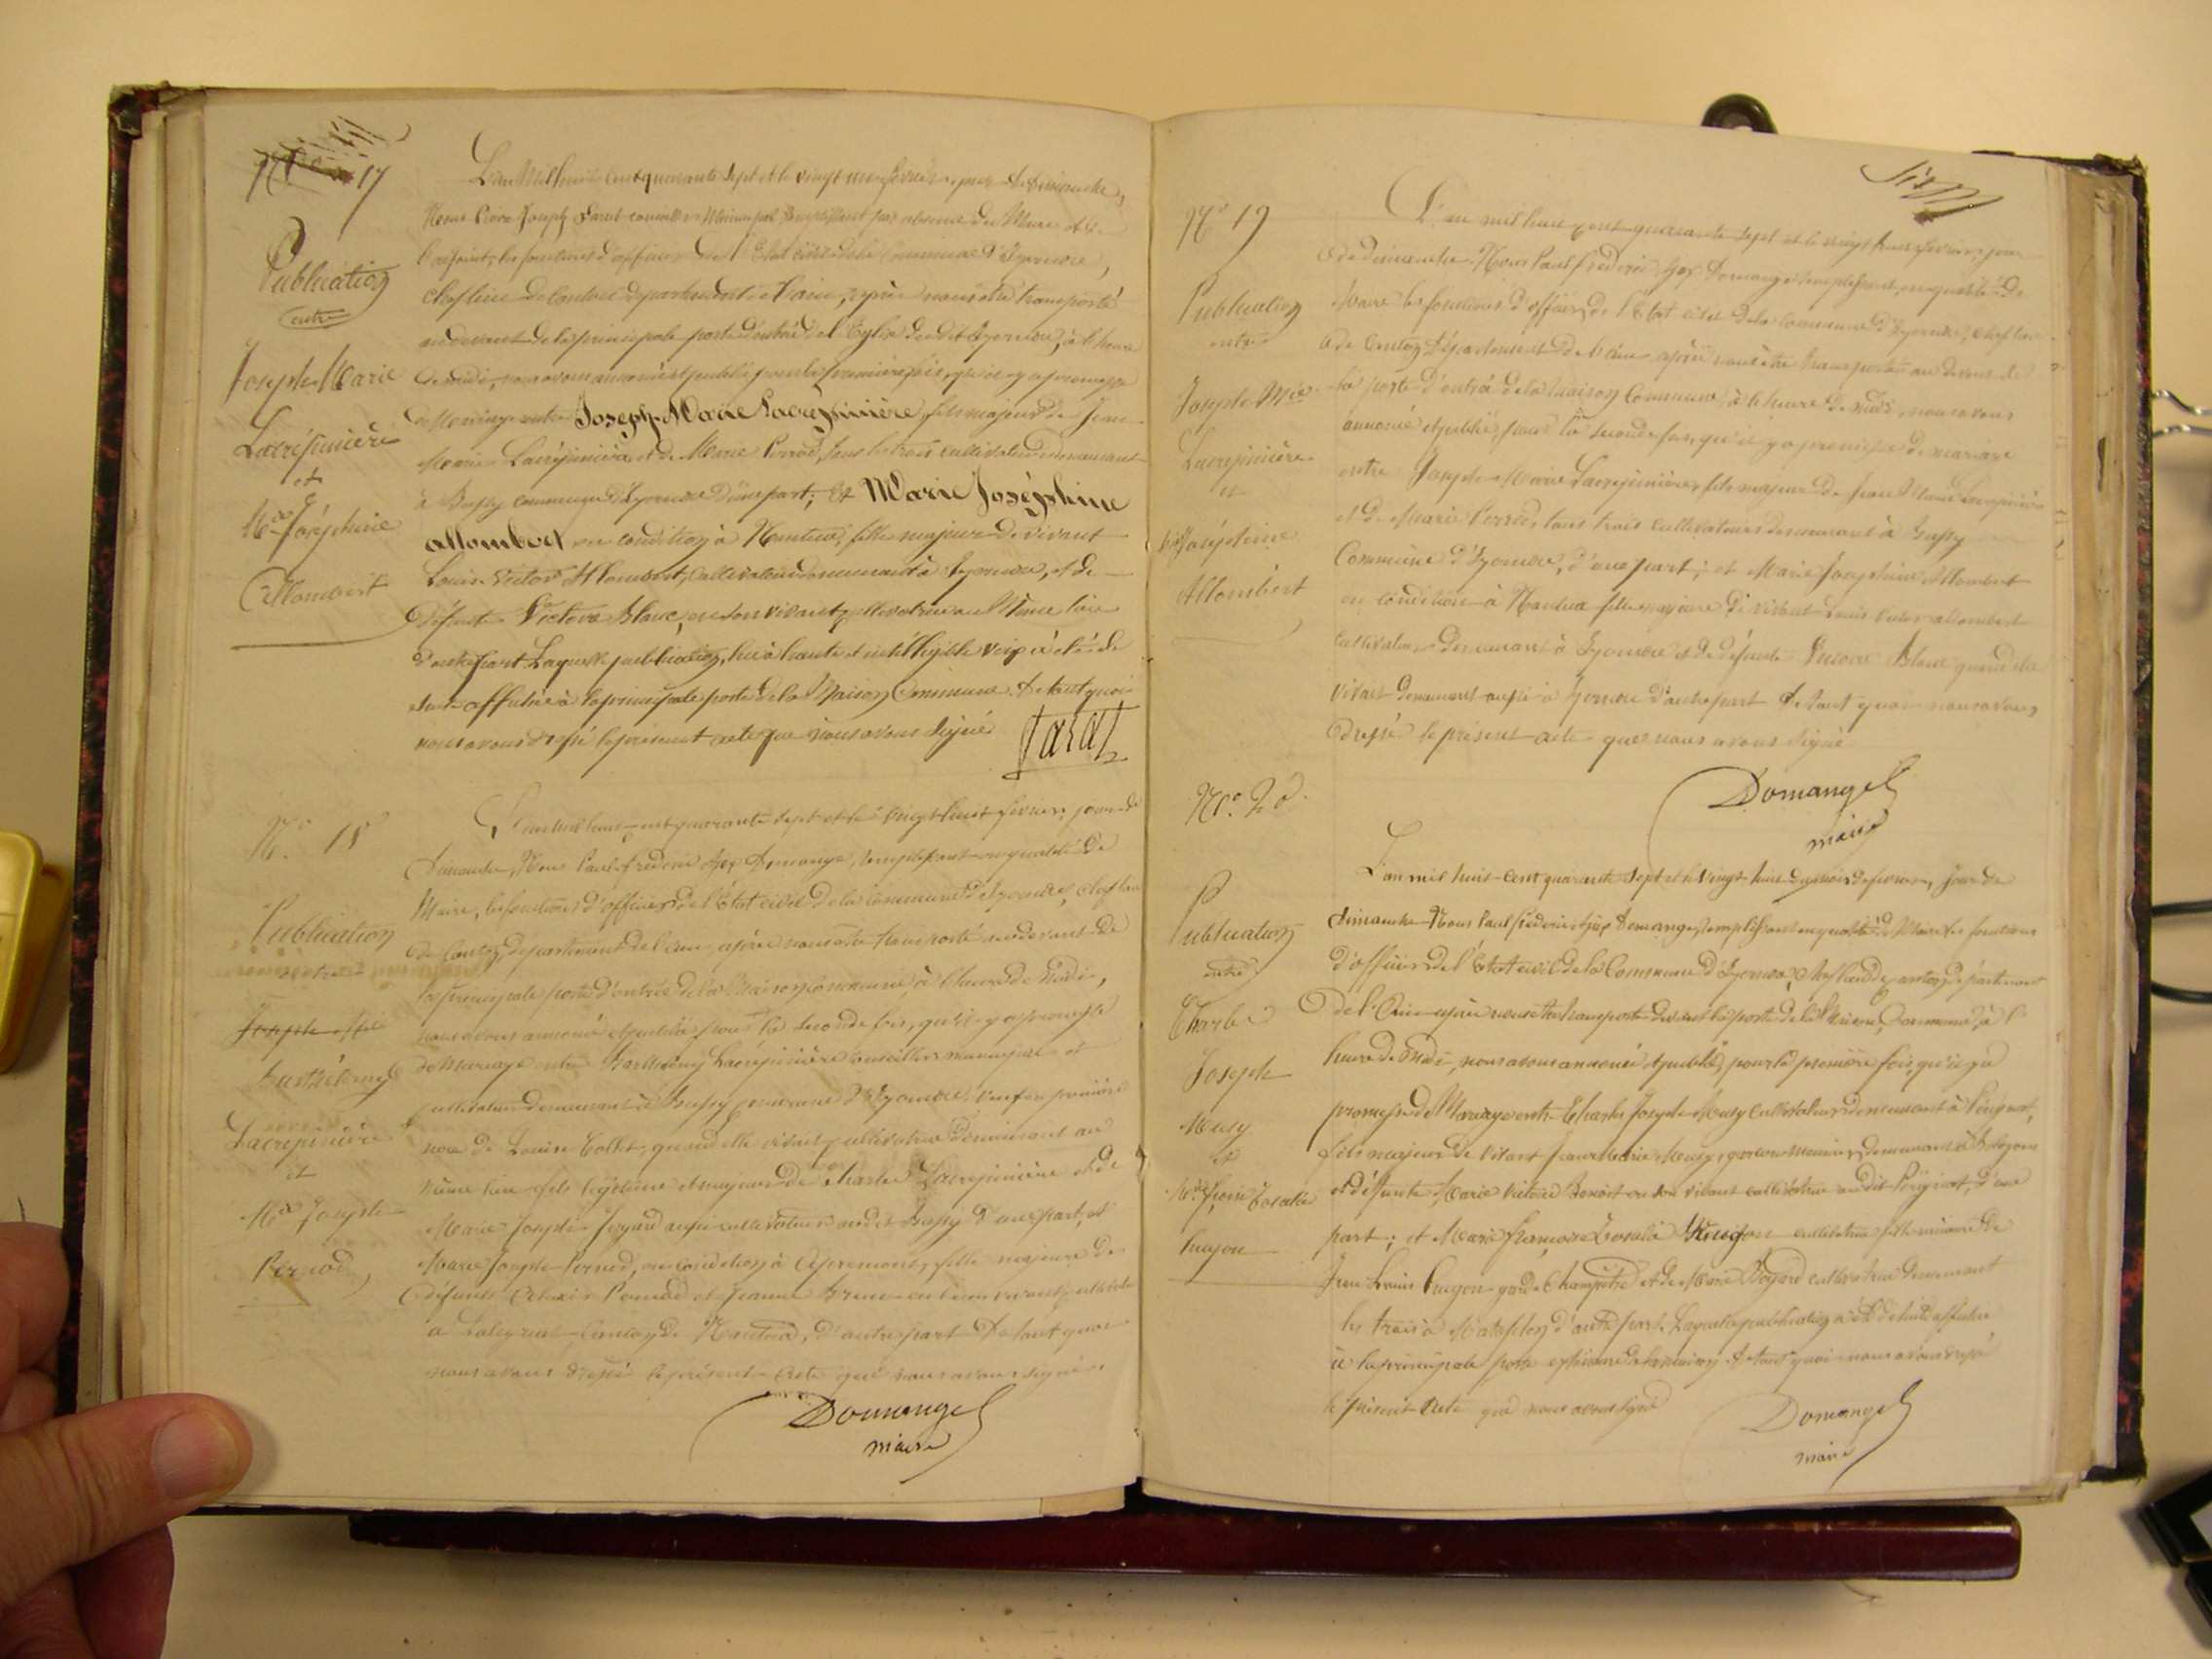 N° 17
Publication
entre
Joseph Marie
Lacrépinière
et
Mie Joséphine
Allombert
L'an Mil huit cent quarante sept et le vingt un février, jour de Dimanche,
Nous Pierre Joseph Tarat conseiller Municipal Remplissant par absence du Maire et de
l'adjoint, les fonctions d'officier de l'Etat civil de la Commune d'Izernore,
chef lieu de Canton département de l'ain, après nous être transporté
au devant de la principale porte d'entrée de l'Eglise du dit Izernore, à l'heure
de midi, nous avons annoncé et publié pour la première fois, qu'il y a promesse
de Mariage entre Joseph-Marie Lacrépinière, fils majeur de Jean
Marie Lacrépinière et de Marie Perrod, tous les trois cultivateurs demeurant
à Bussy commune d'Izernore d'une part; Et Marie Joséphine
allombert en condition à Nantua, fille majeure de vivant
Louis Victor Allombert, cultivateur demeurant à Izernore, et de
défunte Victoire Blanc, en son vivant cultivatrice au Même lieu
d'autre part. Laquelle publication, lue à haute et intelligible voix à été de
suite affichée à la principale porte de la Maison Commune. De tout quoi
nous avons dressé le présent acte que nous avons signé
Tarat
N° 18
Publication
entre
Joseph Mie
Barthélemy
Lacrepinière
et
Mie Joseph
Pernod,
L'an mil huit cent quarante sept et le vingt huit février, jour de
Dimanche, Nous Paul Frédéric Domange, remplissant en qualité de
Maire, les fonctions d'officier de l'Etat civil de la commune d'Izernore, chef lieu
de Canton, département de l'ain, après nous être transporté au devant de
la principale porte d'entrée de la Maison Commune, à l'heure de Midi,
nous avons annoncé et publié pour la seconde fois, qu'il y a promesse
de Mariage entre Barthélemy Lacrépinière conseiller municipal et
cultivateur demeurant à Bussy commune d'Izernore, veuf en première
noce de Louise Collet, quand elle vivait cultivatrice demeurant au
même lieu fils légitime et majeur de Charles Lacrepinière et de
Marie Josephe Joyard aussi cultivateurs au dit Bussy d'une part, et
Marie Josephe Pernod, en condition à Apremont, fille majeure de
défunts Pernod et Jeanne en leur vivant cultivateurs
à Lalleyriat Canton de Nantua, d'autre part De tout quoi
nous avons dressé le présent acte que nous avons signé.
Domange
maire
N° 19
Publication
entre
Joseph Mie
Lacrepinière
et
Mie Joséphine
Allombert
L'an mil huit cent quarante sept et le vingt huit février, jour
de dimanche Nous Paul frédéric Domange remplissant, en qualité de
Maire les fonctions d'officier de l'Etat civil de la commune d'Izernore, chef lieu
de Canton Département de l'ain après nous être transporté au devant de
la porte d'entrée de la Maison Commune, à l'heure de midi, nous avons
annoncé et publié, pour la seconde fois, qu'il y a promesse de mariage
entre Joseph Marie Lacrepinière, fils majeur de Jean Marie Lacrepinière
et de Marie Perrod, tous trois cultivateurs demeurant à Bussy
Commune d'Izernore, d'une part; et Marie Josephine Allombert
en condition à Nantua fille majeure de vivant Louis Victor allombert
cultivateur demeurant à Izernore et de défunte Victoire Blanc quand elle
vivait demeurant aussi à Izernore d'autre part De tout quoi nous avons
dressé le présent acte que nous avons signé
Domange
maire
N° 20
Publication
entre
Charles
Joseph
Meusy
et
Mie fçoise Rosalie
Pugeon
L'an mil huit cent quarante sept et le vingt huit du mois de fevrier, jour de
dimanche Nous Paul frédéric Domange, remplissant en qualité de Maire les fonctions
d'officier de l'Etat civil de la Commune d'Izernore, Chef lieu de canton, département
de l'Ain après nous être transporté devant la porte de la Maison Commune, à l'
heure de Midi, nous avons annoncé et publié, pour la première fois, qu'il y a
promesse de Mariage entre Charles Joseph Meusy cultivateur demeurant à Perignat,
fils majeur de vivant Jean Marie Meusy, garçon Meunier, demeurant à
et défunte Marie Victoire Benoit en son vivant cultivatrice au dit Perignat, d'une
part; et Marie françoise Rosalie Pugeon cultivatrice fille mineure de
Jean Louis Pugeon garde champêtre et de Marie cultivatrice demeurant
les trois à Matafelon d'autre part. Laquelle publication a été de suite affichée
à la principale porte extérieure de la maison De tout quoi nous avons dressé
le présent acte que nous avons signé
Domange
maire